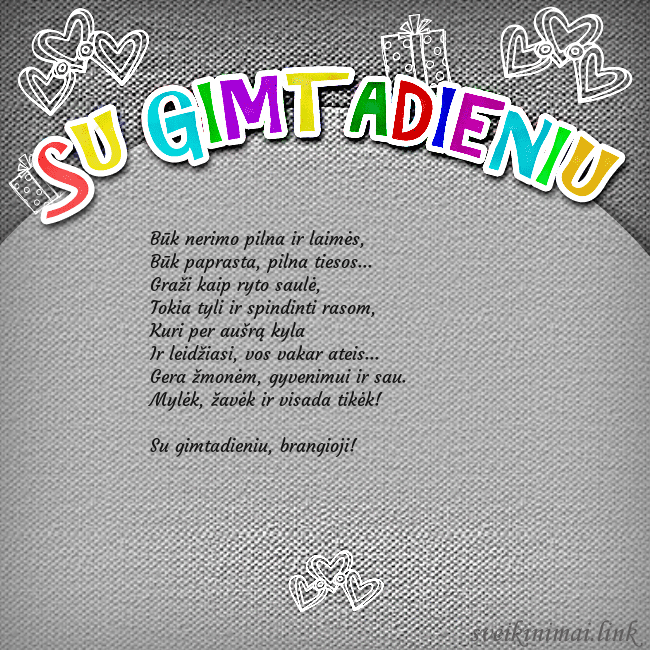 SU GIMTADIENIU
Būk nerimo pilna ir laimės,
Būk paprasta, pilna tiesos...
Graži kaip ryto saulė,
Tokia tyli ir spindinti rasom,
Kuri per aušrą kyla
Ir leidžiasi, vos vakar ateis...
Gera žmonėm, gyvenimui ir sau.
Mylėk, žavėk ir visada tikėk!
Su gimtadieniu, brangioji!
sveikinimai.link